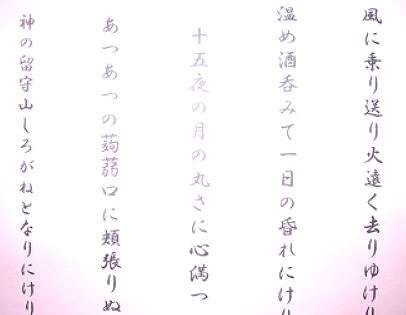 風に乗り送り火遠く去りゆけり
温め酒呑みて一日の昏れにけり
十五夜の月の丸さに心満つ
あつあつの蒟蒻口に頬張りぬ
神の留守山しろがねとなりにけり